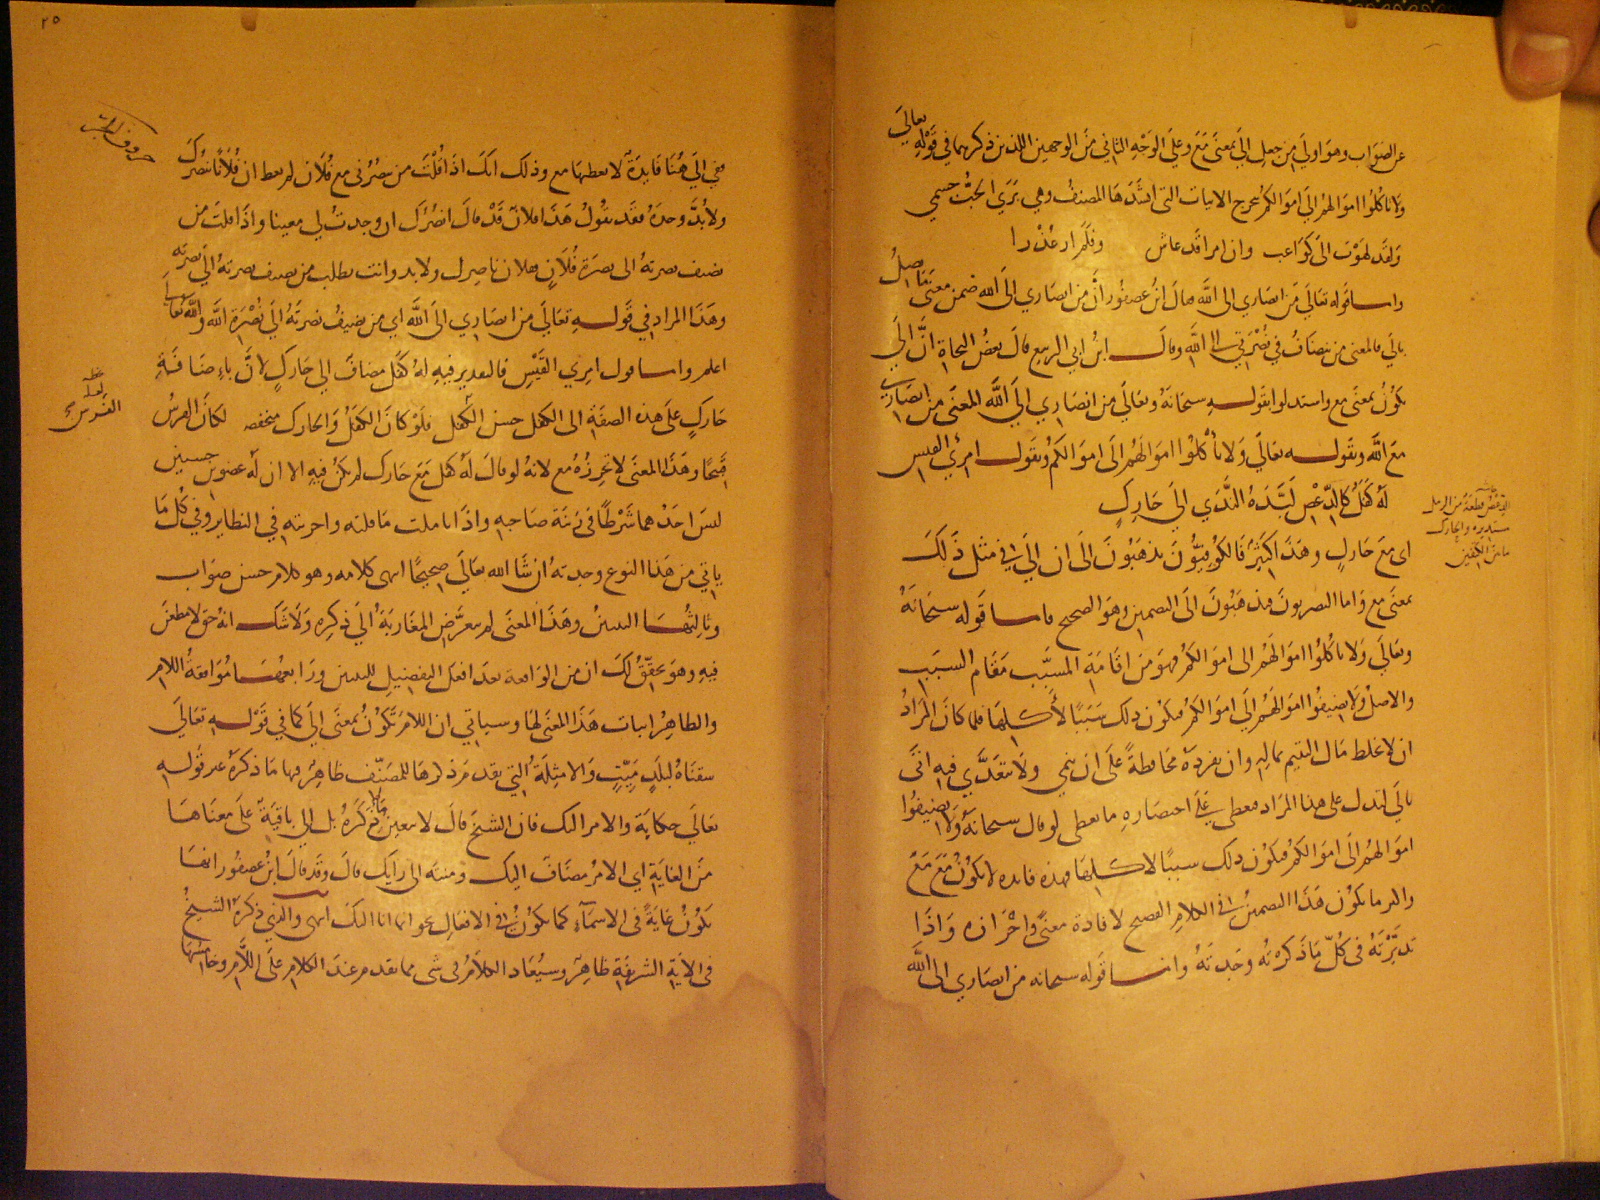 عن الصواب وهو اولي من جعل الي بمعني مع وعلي الوجه الثاني من الوجهين اللذين ذكرهما في قوله تعالي
ولا تاكلوا اموالهم الي اموالكم يخرج الابيات التي انشدها المصنف وهي بري الحب جسمي
ولقد لهوت الي كواعب وان امرا قد عاش
واما قوله تعالي من انصاري الي الله فقال ابن عصفور ان من انصاري الي الله ضمن معني
بالي فالمعني من ينضاف في نصرتي الي الله وقال ابن ابي الربيع قال بعض النحاة ان الي
تكون بمعني مع واستدلوا بقوله سبحانه وتعالي من انصاري الي الله المعني من انصاري
مع الله وبقوله تعالي ولا تاكلوا اموالهم الي اموالكم وبقول امرئ القيس
له كفل كالدعص لبده الندي الي حارك
اي مع حارك وهذا كثير فالكوفيون يذهبون الي ان الي في مثل ذلك
بمعني مع واما البصريون فيذهبون الي التضمين وهو الصحيح فاما قوله سبحانه
وتعالي ولا تاكلوا اموالهم الي اموالكم فهو من اقامة المسبب مقام السبب
والاصل ولا تضيفوا اموالهم الي اموالكم فيكون ذلك سببا لأكلها فلما كان المراد
ان لا يخلط مال اليتيم بماله وان يفرده محافظة علي ان ينمي ولا يتعدي فيه اتي
بالي لتدل علي هذا المراد فعطي علي اختصاره ما يعطي لو قال سبحانه ولا تضيفوا
اموالهم الي اموالكم فيكون ذلك سببا لاكلها فهذه فايده لا تكون مع مع
واكثر ما يكون هذا التضمين في الكلام الفصيح لافادة معني واحرازه واذا
تدبرته في كل ما ذكرته وجدته واما قوله سبحانه من انصاري الي الله
الدعص قطعة من الرمل
مستديره والحارك
ما بين الكتفين
٢٥
حروف الجر
ففي الي هنا فايدة لا تعطيها مع وذلك انك اذا قلت من ينصرني مع فلان لم يعط ان فلانا ينصرك
ولا بد وحده فقد يقول هذا فلان قد قال انصرك ان وجدت لي معينا واذا قلت من
يضيف نصرته الي نصرة فلان ففلان ناصرك ولا بد وانت تطلب من يضيف نصرته الي نصرته
وهذا المراد في قوله تعالي من انصاري الي الله اي من يضيف نصرته الي نصرة الله والله تعالي
اعلم واما قول امرئ القيس فالتقدير فيه له كفل مضاف الي حارك لان باضافة
حارك علي هذه الصفة الي الكفل حسن الكفل فلو كان الكفل والحارك لكان الفرس
قبيحا وهذا المعني لا تحرزه مع لانه لو قال له كفل مع حارك لم يكن فيه الا ان له عضوين حسنين
ليس احدهما شرطا في زينة صاحبه واذا تاملت ما قلته واجريته في النظاير وفي كل ما
ياتي من هذا النوع وجدته ان شا الله تعالي صحيحا انتهي كلامه وهو كلام حسن صواب
وثالثها التبيين وهذا المعني لم يتعرض المغاربة الي ذكره ولا شك انه حق لا مطعن
فيه وهو يحقق لك ان من الواقعة بعد افعل التفضيل للتبيين ورابعها موافقة اللام
والظاهر اثبات هذا المعني لها وسياتي ان اللام تكون بمعني الي كما في قوله تعالي
سقناه لبلد ميت والامثلة التي تقدم ذكرها للمصنف ظاهر فيها ما ذكره غير قوله
تعالي حكاية والامر اليك فان الشيخ قال لا يتعين ما ذكره بل الي باقية علي معناها
من الغاية اي الامر مضاف اليك ومنته الي رايك قال وقد قال ابن عصفور انها
تكون غاية في الاسماء كما تكون في الافعال نحو انما انا اليك انتهي والذي ذكره الشيخ
في الاية الشريفة ظاهر وسيعاد الكلام في شي مما تقدم عند الكلام علي اللام وخامسها
لعله
الفرس